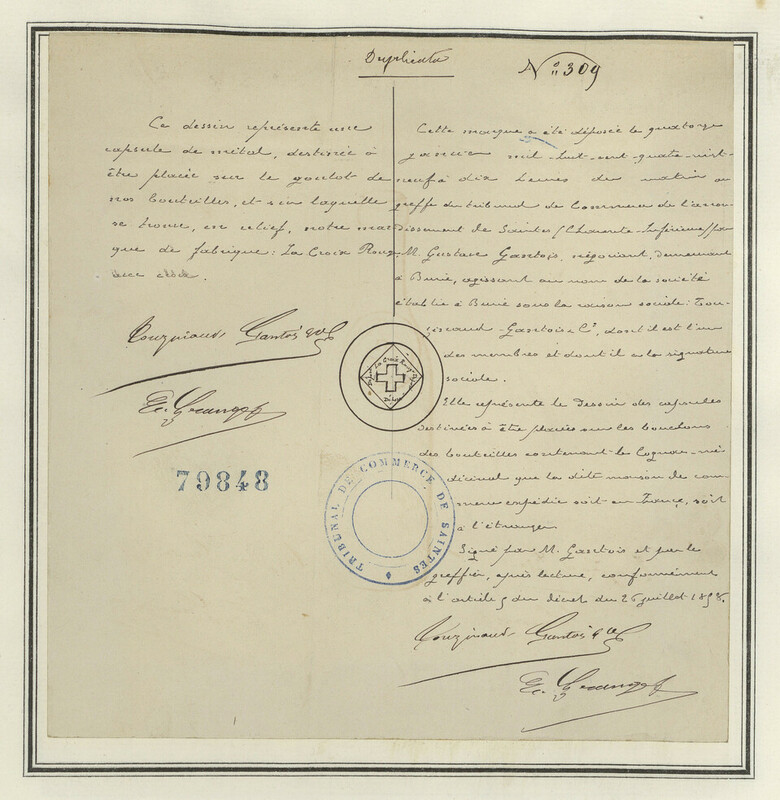 Duplicata
Nº 309
Ce dessin représente une
capsule de métal, destinée à
être placée sur le goulot de
nos bouteilles, et sur laquelle
se trouve, en relief, notre mar
que de fabrique : La Croix Roug
avec
Gantois
79848
Cette marque a été déposée le quatorze
janvier mil huit cent quatre-vingt-
neuf à dix heures du matin au
greffe du tribunal de Commerce de l'arron-
dissement de Saintes (Charente-Inférieure) par
M. Gustave Gantois, négociant, demeurant
à Burie, agissant au nom de la société
établie à Burie sous la raison sociale : Tou-
Gantois & Cie, dont il est l'un
des membres et dont il a la signature
sociale.
Elle représente le dessin des capsules
destinées à être placées sur les bouchons
des bouteilles contenant le Cognac-mé-
dicinal que la dite maison de com-
merce expédie soit en France, soit
à l'étranger.
Signé par M. Gantois et par le
greffier, après lecture, conformément
à l'article 5 du décret du 26 juillet 1858.
Gantois
La Croix Rouge
TRIBUNAL DE COMMERCE DE SAINTES